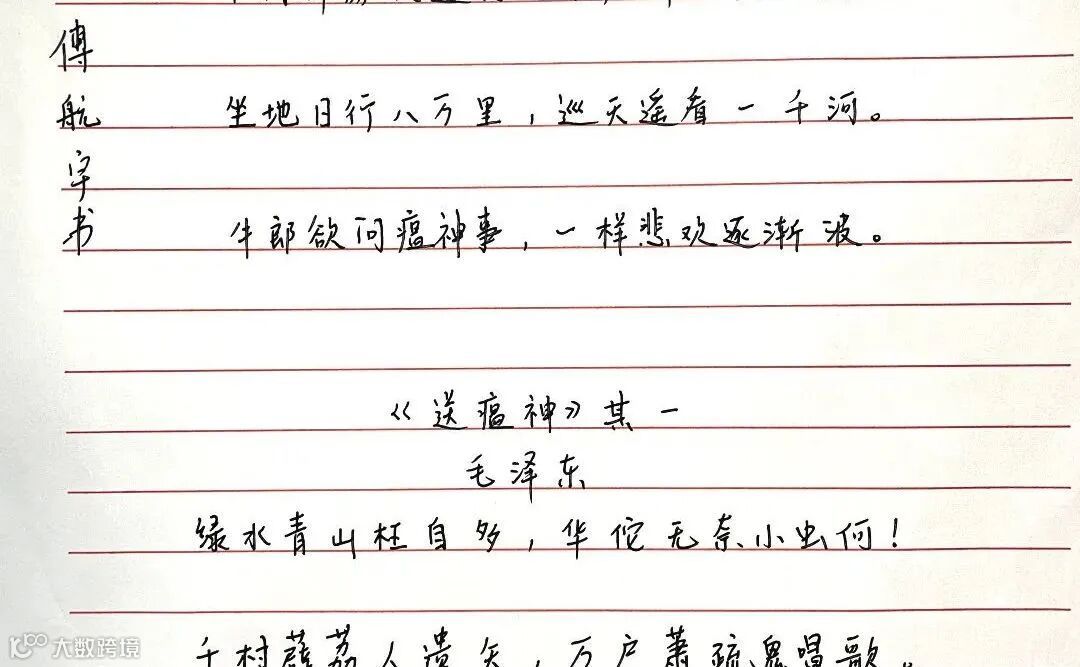 傅航字书
坐地日行八万里，巡天遥看一千河。
牛郎欲问瘟神事，一样悲欢逐渐波。
《送瘟神》其一
毛泽东
绿水青山枉自多，华佗无奈小虫何！
千村薜荔人遗矢，万户萧疏鬼唱歌。
大数跨境